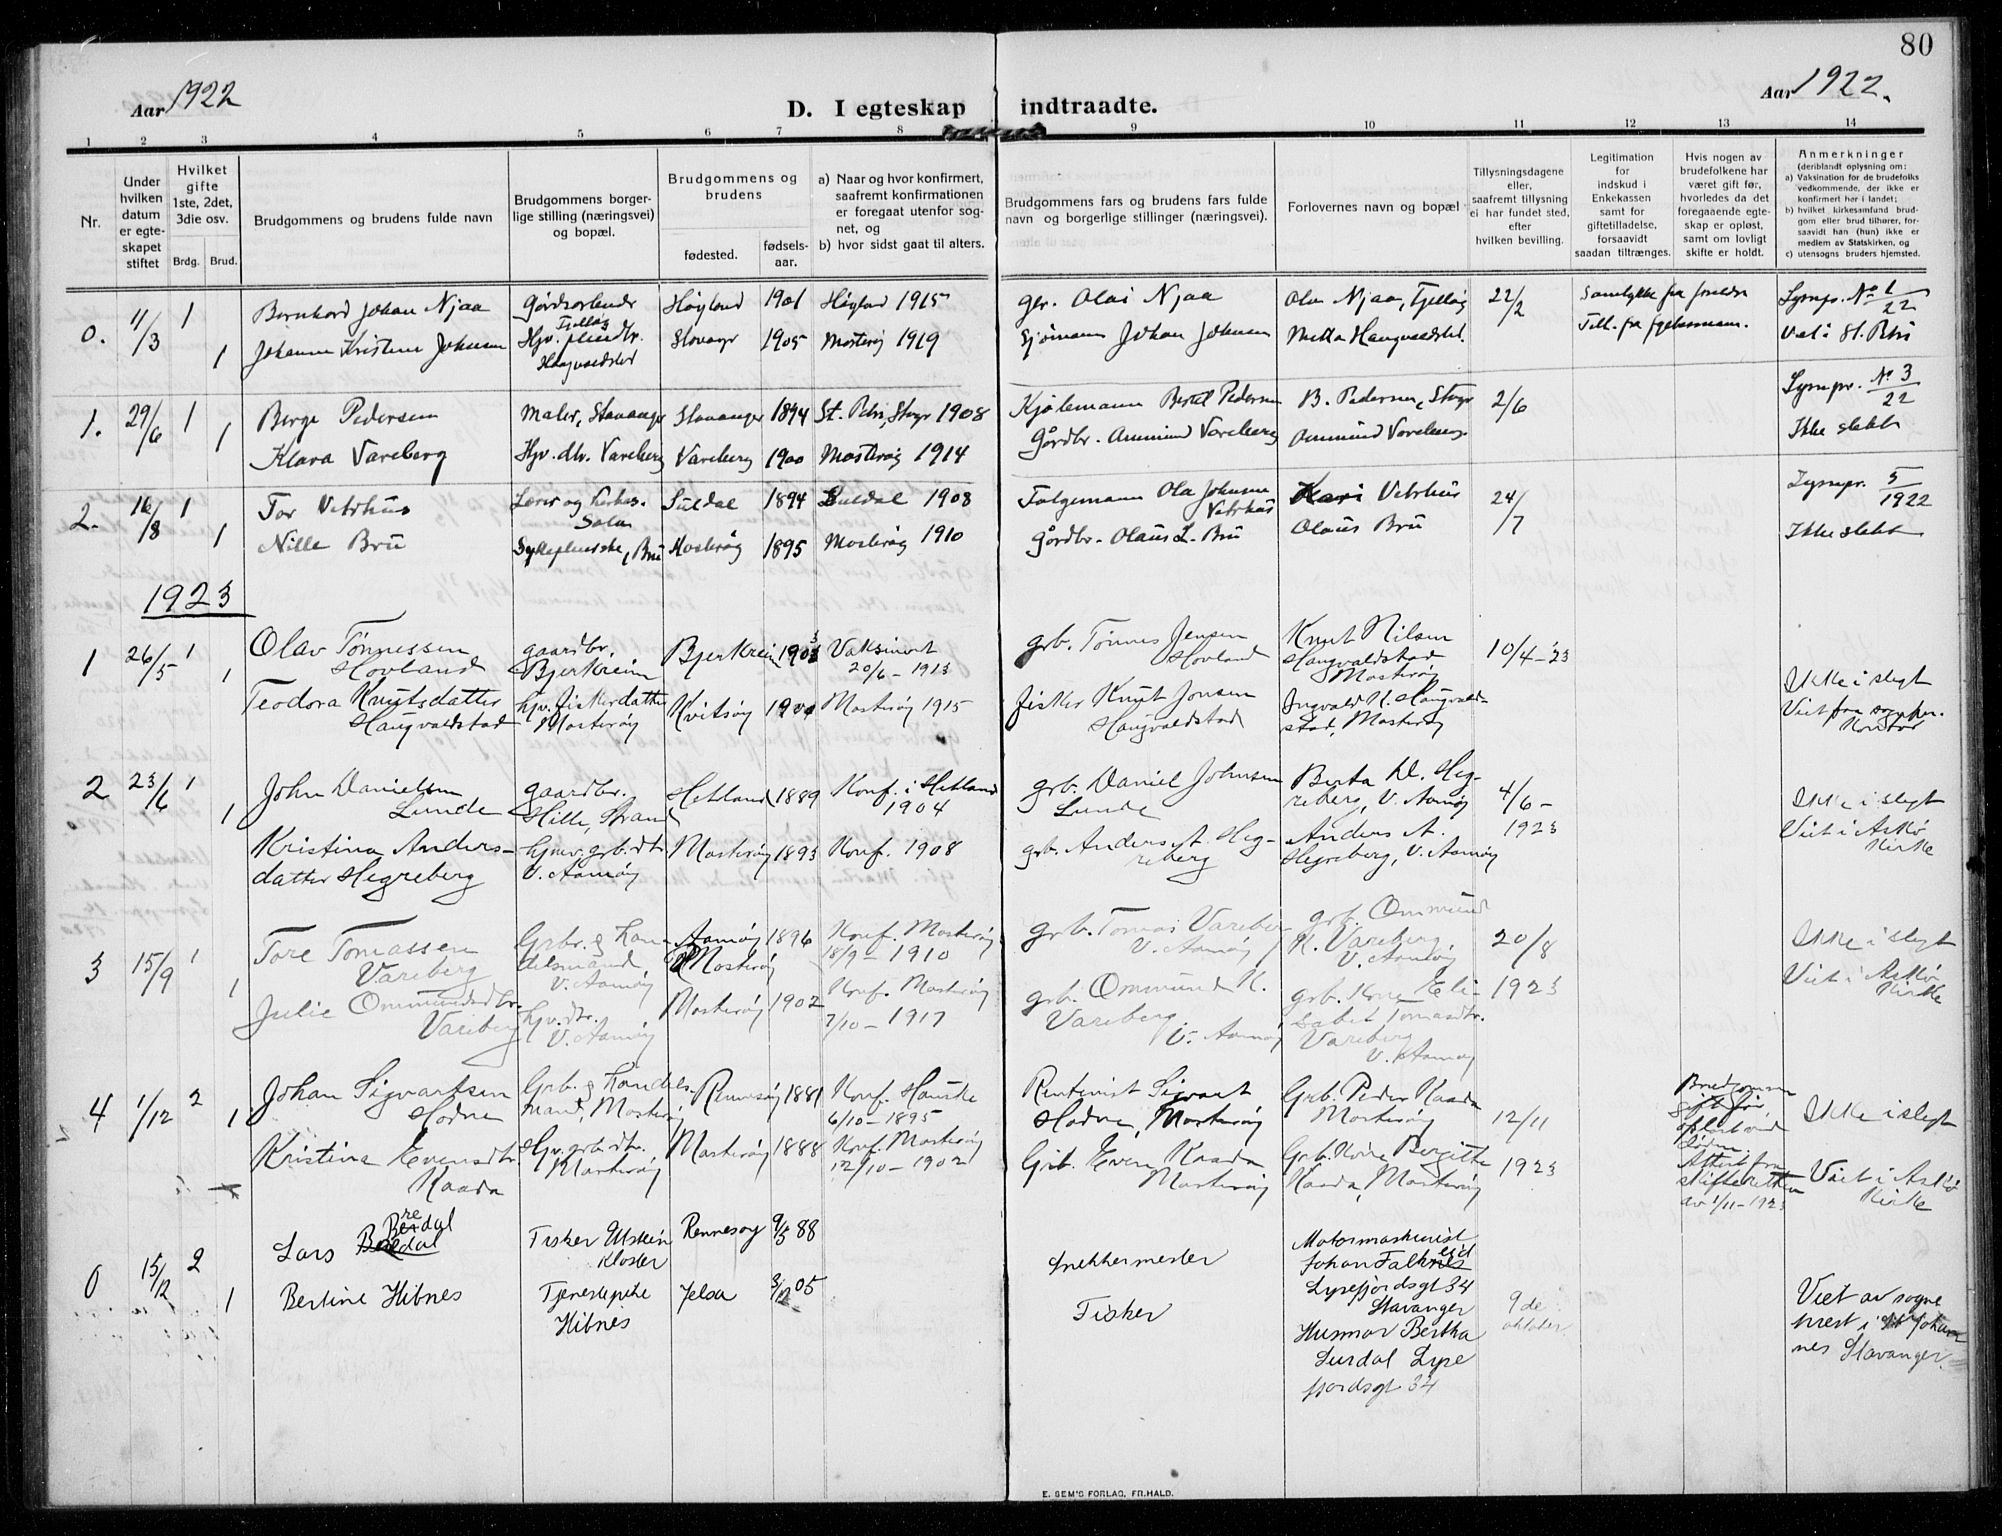 80
Aar 1922
D. I egteskap indtraadte.
Aar 1922.
1 2 3 4 5 6 7 8 9 10 11 12 13 14
Nr.
Under hvilken datum er egte-skapet stiftet
Hvilket gifte 1ste, 2det, 3die osv.
Brdg. Brud.
Brudgommens og brudens fulde navn
Brudgommens borger-lige stilling (næringsvei) og bopæl.
Brudgommens og brudens
fødested.
fødsels-aar.
a) Naar og hvor konfirmert, saafremt konfirmationen er foregaat utenfor sog-net, og
b) hvor sidst gaat til alters.
Brudgommens fars og brudens fars fulde navn og borgerlige stillinger (næringsvei).
Forlovernes navn og bopæl
Tillysningsdagene eller, saafremt tillysning ei har fundet sted, efter hvilken bevilling.
Legitimation for indskud i Enkekassen samt for giftetilladelse, forsaavidt saadan tiltrænges.
Hvis nogen av brudefolkene har været gift før, hvorledes da det foregaaende egte-skap er opløst, samt om lovligt skifte er holdt.
Anmerkninger
(deriblandt oplysning om:
a) Vaksination for de brudefolks vedkommende, der ikke er konfirmert her i landet;
b) hvilket kirkesamfund brud-gom eller brud tilhører, for-saavidt han (hun) ikke er medlem av Statskirken, og
c) utensogns bruders hjemsted.
0. 11/3 1 Bernhard Johan Njaa Høyland 1901 Høyland 1915 Olai Njaa 22/2
1 Johanne Kristine Johnsen Stavanger 1905 Mosterøy 1919 Sjømann Johan Johnsen
1. 29/6 1 Børge Pedersen Maler, Stavanger Stavanger 1894 St. Petri, Stvgr 1908 Bertel Pedersen B. Pedersen, Stvgr 2/6 Lysnpr. No 3/22
1 Klara Vareberg Hjv. dtr. Vareberg Vareberg 1900 Mosterøy 1914 Gårdbr. Ommund Vareberg Ommund Vareberg Ikke slekt
2. 16/8 1 Tor Vetrhus Suldal 1894 Suldal 1908 Ola Johnsen Vetrhus Kari Vetrhus 24/7 Lysnpr. 5/1922
1 Nille Bru Sykepleierske, Bru Mosterøy 1895 Mosterøy 1910 Gårdbr. Olaus L. Bru Olaus Bru Ikke slekt
1923
1 26/5 1 Olav Tønnessen gaardbr. Bjerkreim 1903 Vaksinert grb. Tønnes Jensen Knut Nilsen 10/4-23
1 Hovland Bjerkreim 20/6 - 1913 Hovland Haugvaldstad Mosterøy
Teodora Knutsdatter hjv. fiskerdatter Kvitsøy 1900 Mosterøy 1915 fisker Knut Jonsen Ingvald K. Haugvald- Ikke i slegt
Haugvaldstad Mosterøy Haugvaldstad stad, Mosterøy Viet fra sognepr. kontor
2 23/6 1 John Danielsen gaardbr. Hetland 1889 Konf. i Hetland grb. Daniel Johnsen Berta D. Heg- 4/6 -
1 Lunde Hille, Strand 1904 Lunde reberg, V. Aamøy 1923 Ikke i slegt
Kristina Anders- hjmv. grb. dt. Mosterøy 1893 Konf. 1908 grb. Anders A. Heg- Anders A. Viet i Askø
datter Hegreberg V. Aamøy reberg Hegreberg, V. Aamøy Kirke
3 15/9 1 Tore Tomassen Grbr. & han- Aamøy 1896 Konf. Mosterøy grb. Tomas Vareberg grb. Ommund 20/8 Ikke i slegt
1 Vareberg delsmand V. Aamøy Mosterøy 18/9 - 1910 V. Aamøy K. Vareberg V. Aamøy
Julie Ommundsdtr. hjv. dtr. Mosterøy 1902 Konf. Mosterøy grb. Ommund K. grb. Kone Eli- 1923 Viet i Askø
Vareberg V. Aamøy 7/10 - 1917 Vareberg V. Aamøy sabet Tomasdtr. Vareberg V. Aamøy Kirke
4 1/12 2 Johan Sigvartsen Grb. & handels- Rennesøy 1881 Konf. Hauske Rentenist Sigvart Grb. Peder Kaada 12/11 Brudgommen gift før, Ikke i slegt
1 Hodne mand, Mosterøy 6/10 - 1895 Hodne, Mosterøy Mosterøy opløst ved døden.
Kristina Evensdtr. Hjv. grb. dtr. Mosterøy 1888 Konf. Mosterøy Grb. Even Kaada Grb. Kone Bergitte 1923 Attest fra skifteretten Viet i Askø
Kaada Mosterøy 12/10 - 1902 Mosterøy Kaada, Mosterøy av 1/11 - 1923 Kirke
0 15/12 2 Lars Berdal re Berdal Fisker Utstein Kloster Rennesøy 9/5 88 Snekkermester Motormaskinist Johan Falkeid Lysefjordsgt 34 Stavanger
1 Bertine Hibnes Tjenestepike Hibnes Jelsa 3/12 05 Fisker Husmor Bertha Surdal Lyse fjordsgt 34 9de oktober Viet av sogne prest i St Johan nes Stavanger.
E. SEM'S FORLAG, FR.HALD.